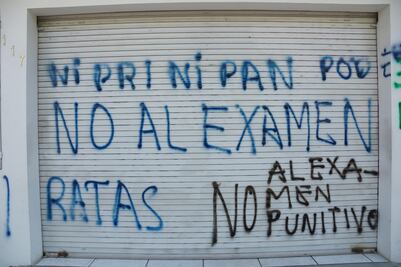 NI PRI NI PAN
NO AL EXAMEN
RATAS
NO AL EXA-
MEN
PUNITIVO